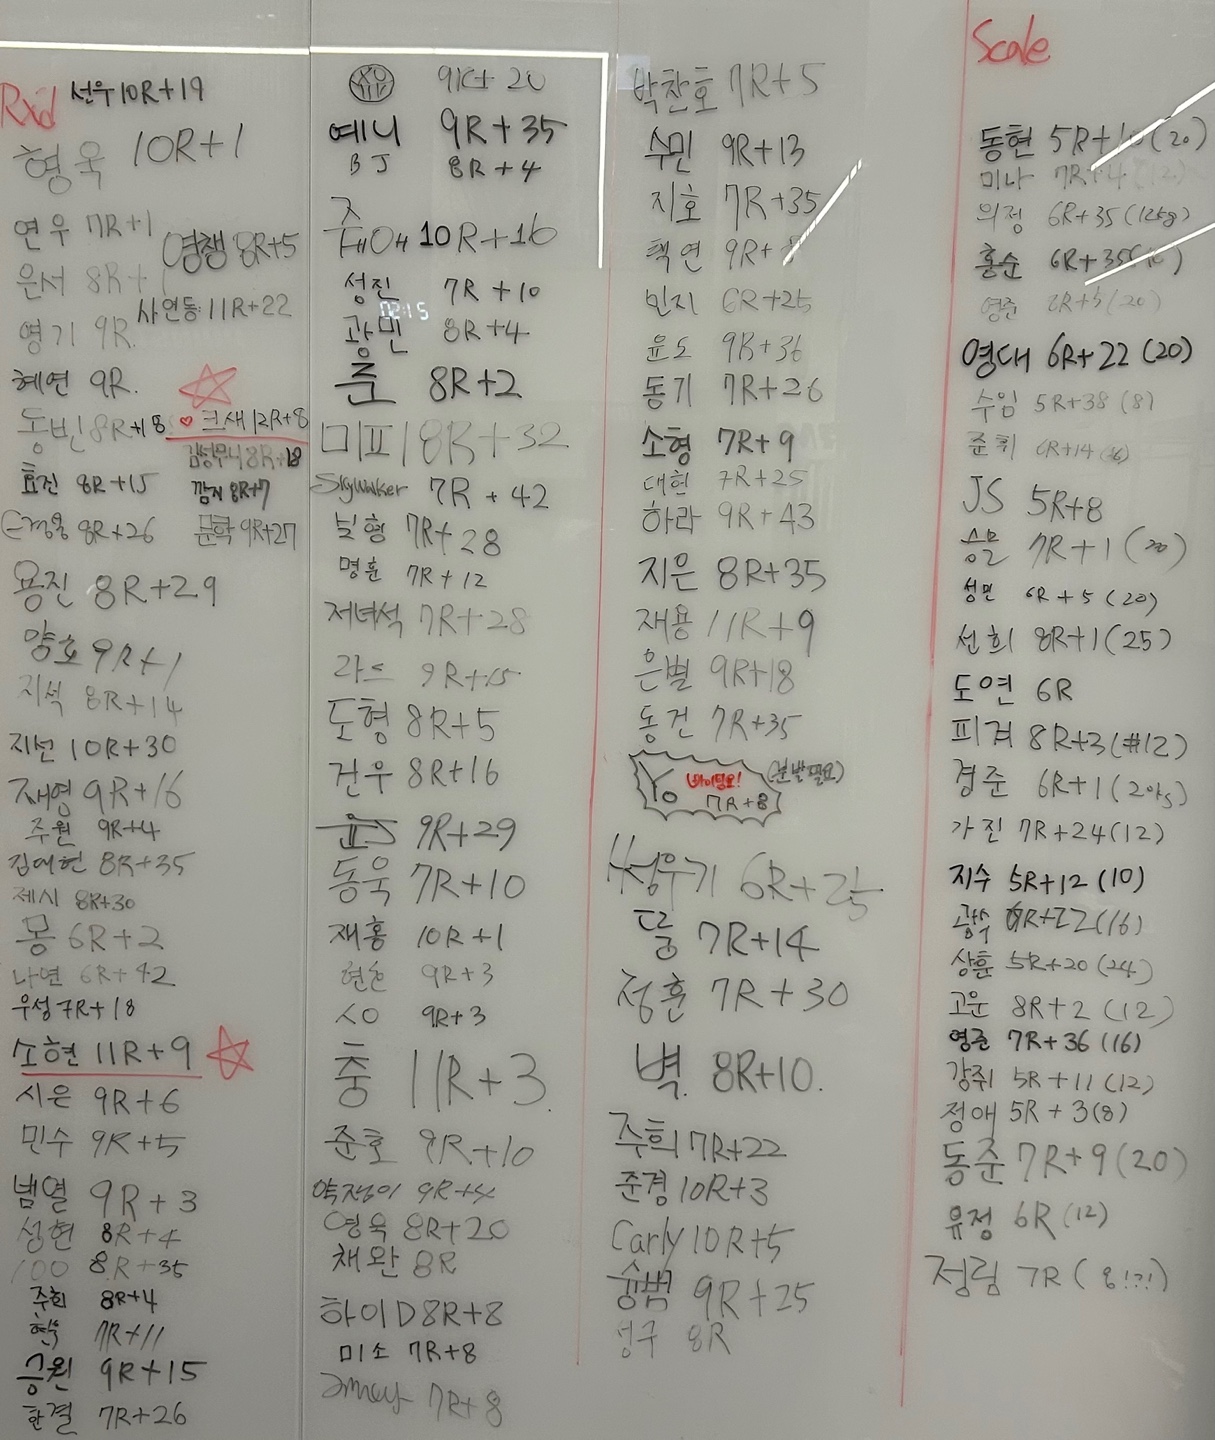 Rxd
선우 10R+19
형욱 10R+1
연우 7R+1
영쟁 8R+5
은서 8R+
사연동 11R+22
영기 9R.
혜연 9R.
동빈 8R+18
♡ 크새 12R+8
김성우니 8R+18
효진 8R+15
깜지 8R+7
8R+26
문학 9R+27
용진 8R+29
양호 9R+1
지석 8R+14
지선 10R+30
재영 9R+16
주원 9R+4
김예현 8R+35
제시 8R+30
몽 6R+2
나연 6R+42
우성 7R+18
소현 11R+9
시은 9R+6
민수 9R+5
범열 9R+3
성현 8R+4
100 8R+35
주희 8R+4
현수 7R+11
승원 9R+15
한결 7R+26
9R+20
예니 9R+35
BJ 8R+4
10R+16
성진 7R+10
광민 8R+4
준 8R+2
미피 18R+32
Skywalker 7R+42
보형 7R+28
명훈 7R+12
저녀석 7R+28
라드 9R+15
도형 8R+5
건우 8R+16
윤S 9R+29
동욱 7R+10
재홍 10R+1
현호 9R+3
SO 9R+3
충 11R+3.
준호 9R+10
약쟁이 9R+4
영욱 8R+20
채완 8R
하이D 8R+8
미소 7R+8
7R+8
박찬호 7R+5
수민 9R+13
지호 7R+35
택연 9R+
민지 6R+25
윤도 9R+36
동기 7R+26
소형 7R+9
대현 7R+25
하라 9R+43
지은 8R+35
재용 11R+9
은별 9R+18
동건 7R+35
Yo 화이팅요! 7R+8
(분발필요)
H성우기 6R+25
뚱 7R+14
정훈 7R+30
벽. 8R+10.
주희 7R+22
준경 10R+3
Carly 10R+5
슝범 9R+25
성구 8R
Scale
동현 5R+10(20)
미나 7R+4(12)
의정 6R+35(12kg)
홍순 6R+35
영준 8R+5(20)
영대 6R+22(20)
수임 5R+38(8)
준퀴 6R+14(16)
JS 5R+8
승문 7R+1(20)
성민 6R+5(20)
선희 8R+1(25)
도연 6R
피겨 8R+3(#12)
경준 6R+1(20kg)
가진 7R+24(12)
지수 5R+12(10)
광수 6R+22(16)
상훈 5R+20(24)
고운 8R+2(12)
영준 7R+36(16)
강쥐 5R+11(12)
정애 5R+3(8)
동준 7R+9(20)
유정 6R(12)
정림 7R(8!?!)